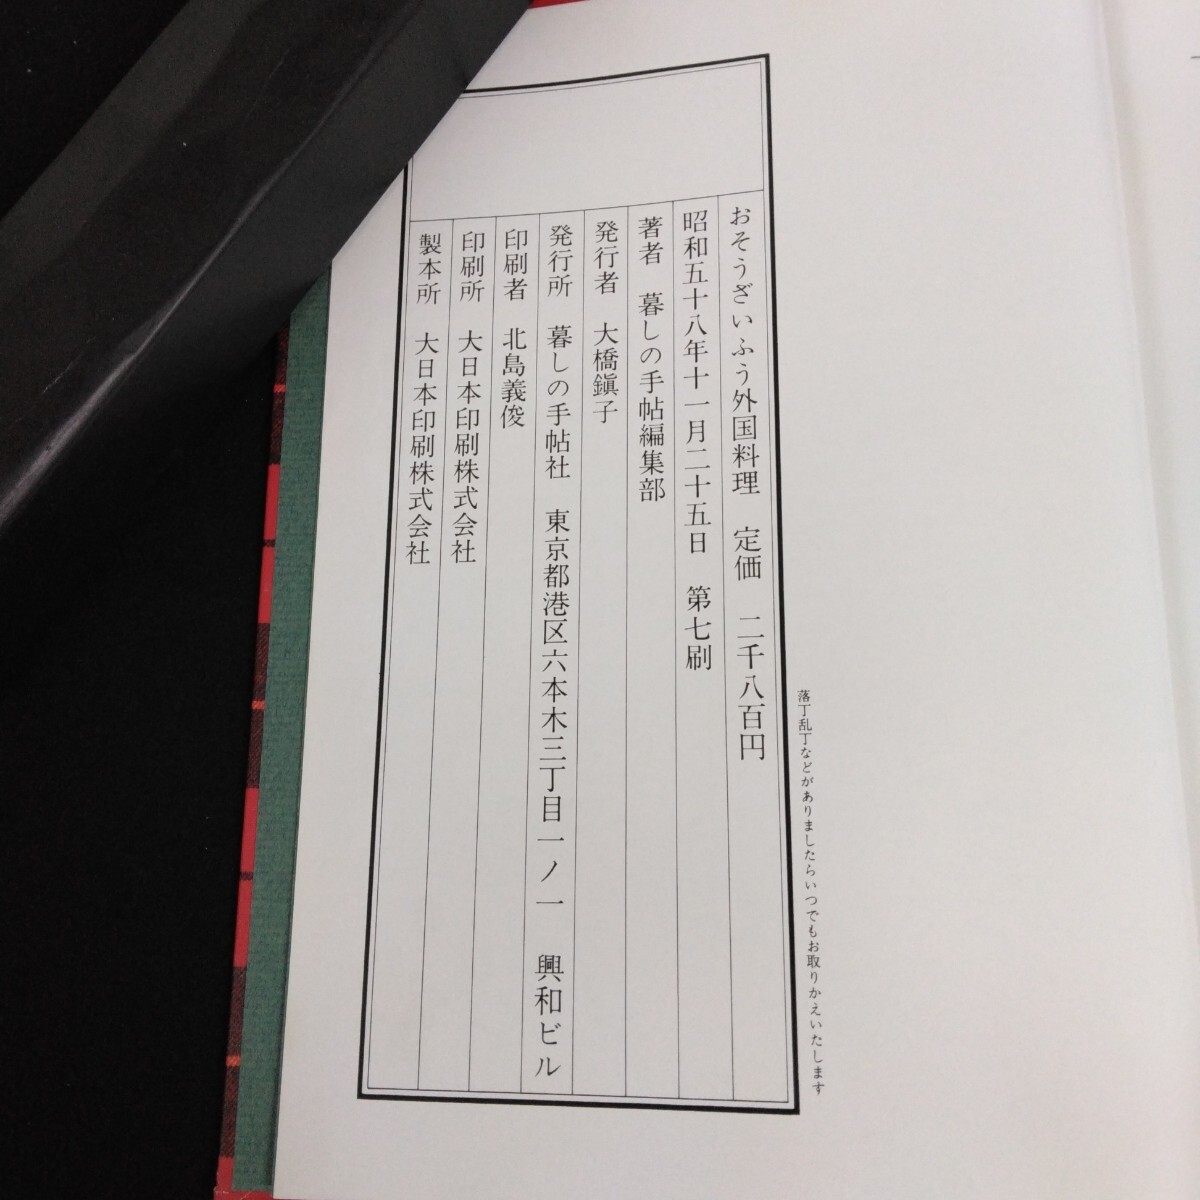 落丁乱丁などがありましたらいつでもお取りかえいたします
おそうざいふう外国料理 定価 二千八百円
昭和五十八年十一月二十五日 第七刷
著者 暮しの手帖編集部
発行者 大橋鎭子
発行所 暮しの手帖社 東京都港区六本木三丁目一ノ一 興和ビル
印刷者 北島義俊
印刷所 大日本印刷株式会社
製本所 大日本印刷株式会社